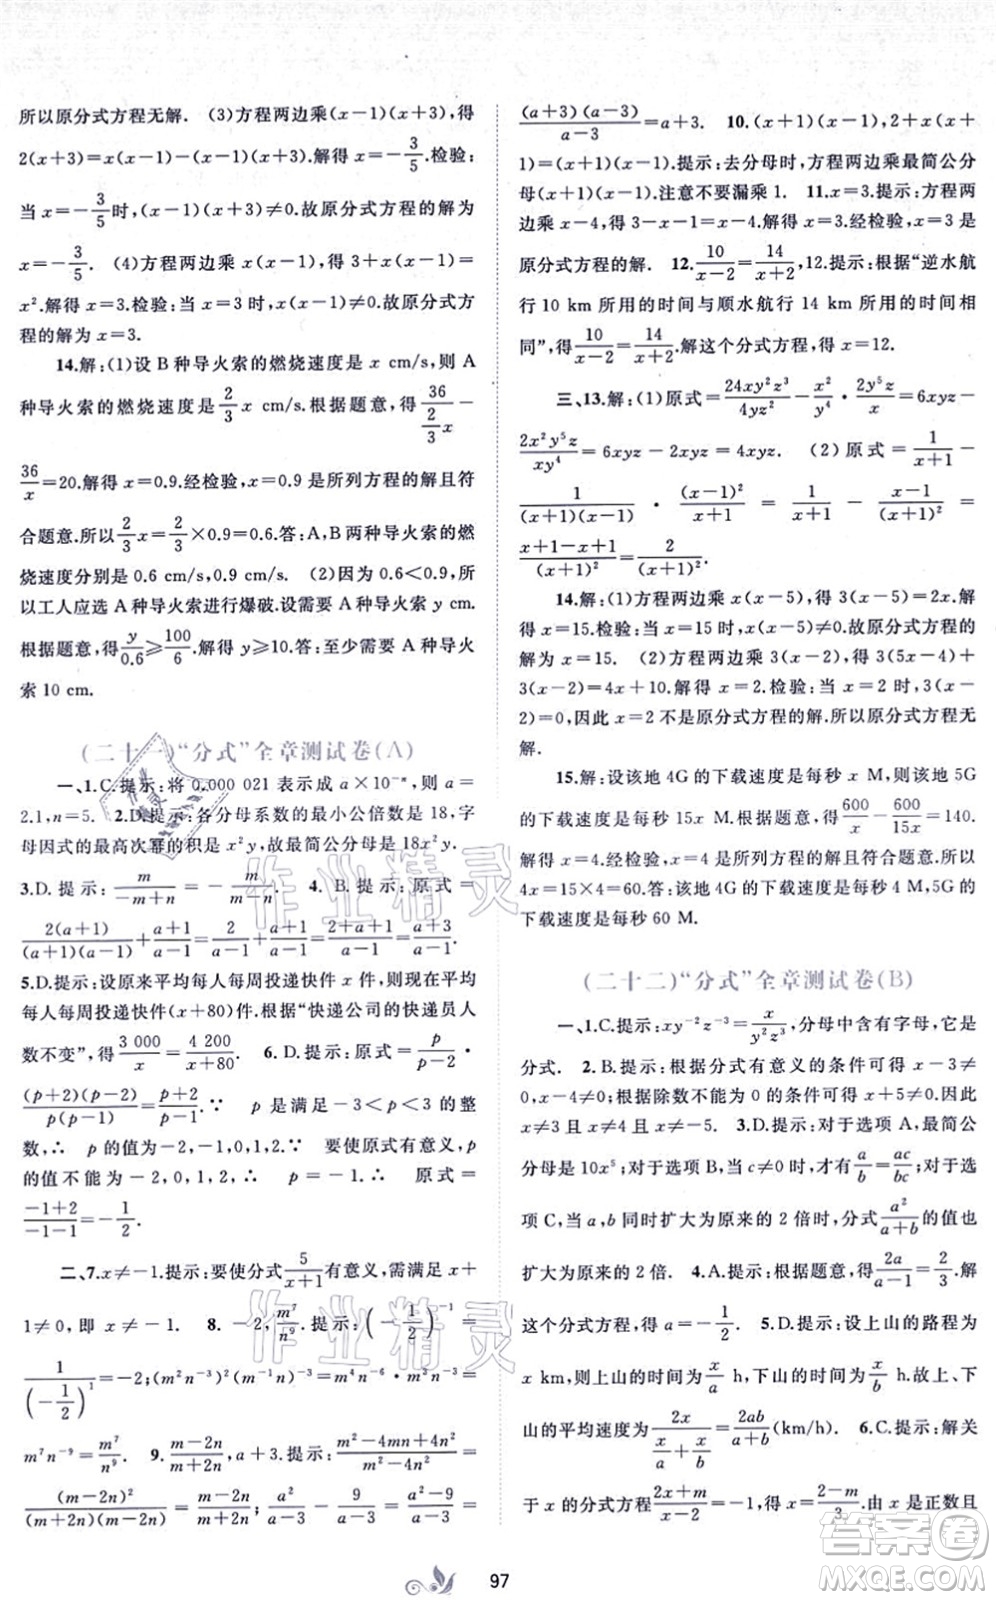 所以原分式方程无解.　(3)方程两边乘(x－1)(x＋3),得
2(x＋3)＝x(x－1)－(x－1)(x＋3).解得 x＝－3/5.检验:
当 x＝－3/5时,(x－1)(x＋3)≠0.故原分式方程的解为
x＝－3/5.　(4)方程两边乘 x(x－3),得 3＋x(x－3)＝
x².解得 x＝3.检验:当 x＝3 时,x(x－3)＝0.故原分式方
程的解为 x＝3.
14.解:(1)设 B 种导火索的燃烧速度是 x cm/s,则 A
种导火索的燃烧速度是 2/3 x cm/s.根据题意,得 36/(2/3 x)－
36/x＝20.解得 x＝0.9.经检验,x＝0.9 是所列方程的解且符
合题意.所以 2/3 x＝2/3×0.9＝0.6.答:A,B 两种导火索的燃
烧速度分别是 0.6 cm/s,0.9 cm/s.　(2)因为 0.6＜0.9,所
以工人应选 A 种导火索进行爆破.设需要导火索 y cm.
根据题意,得 y/0.6≥100/6.解得 y≥10.答:至少需要 A 种导火
索 10 cm.
(二十一)“分式”全章测试卷(A)
一、1.C.提示:将 0.000 021 表示成 a×10⁻ⁿ,则 a＝
2.1,n＝5.　2.D.提示:各分母系数的最小公倍数是 18,字
母因式的最高次幂的积是 x²y,故最简公分母是 18x²y.
3.D. 提示: m/(－m＋n)＝－m/(m－n).　4. B. 提示:原式＝
2(a＋1)/((a＋1)(a－1))＋(a＋1)/(a－1)＝2/(a－1)＋(a＋1)/(a－1)＝(2＋a＋1)/(a－1)＝(a＋3)/(a－1).
5.D.提示:设原来平均每人每周投递快件 x 件,则现在平均
每人每周投递快件(x＋80)件.根据“快递公司的快递员人
数不变”,得 3 000/x＝4 200/(x＋80).　6. D. 提示:原式＝p/(p－2)·
(p＋2)(p－2)/(p(p－1))＝(p＋2)/(p－1).∵　p 是满足－3＜p＜3 的整
数,∴　p 的值为－2,－1,0,1,2.∵　要使原式有意义,p
的值不能为－2,0,1,2,∴　p＝－1.∴　原式＝
(－1＋2)/(－1－1)＝－1/2.
二、7.x≠－1.提示:要使分式 5/(x＋1) 有意义,需满足 x＋
1≠0,即 x≠－1.　8.－2,m⁷/n⁹.提示:(－1/2)⁻¹＝
1/(－1/2)¹＝－2;(m²n⁻³)²(m²n⁻³)＝m⁴n⁻⁶·m³n⁻³＝
m⁷n⁻⁹＝m⁷/n⁹.　9.(m－2n)/(m＋2n),a＋3.提示:(m²－4mn＋4n²)/(m²－4n²)＝
(m－2n)²/((m＋2n)(m－2n))＝(m－2n)/(m＋2n);a²/(a－3)－9/(a－3)＝(a²－9)/(a－3)＝
(a＋3)(a－3)/(a－3)＝a＋3.　10.(x＋1)(x－1),2＋x(x＋
1)＝(x＋1)(x－1).提示:去分母时,方程两边乘最简公分
母(x＋1)(x－1).注意不要漏乘 1.　11.x＝3.提示:方程两
边乘 x－4,得 3－x－1＝x－4.解得 x＝3.经检验,x＝3 是
原分式方程的解.　12.10/(x－2)＝14/(x＋2),12.提示:根据“逆水航
行 10 km 所用的时间与顺水航行 14 km 所用的时间相
同”,得 10/(x－2)＝14/(x＋2).解这个分式方程,得 x＝12.
三、13.解:(1)原式＝24xy²z³/4yz²－x²/y⁴·2y⁵z/x＝6xyz－
2x²y⁵z/xy⁴＝6xyz－2xyz＝4xyz.　(2)原式＝1/(x＋1)－
1/((x＋1)(x－1))·(x－1)²/(x＋1)＝1/(x＋1)－(x－1)/(x＋1)²＝
(x＋1－x＋1)/(x＋1)²＝2/(x＋1)².
14.解:(1)方程两边乘 x(x－5),得 3(x－5)＝2x.解
得 x＝15.检验:当 x＝15 时,x(x－5)≠0.故原分式方程的
解为 x＝15.　(2)方程两边乘 3(x－2),得 3(5x－4)＋
3(x－2)＝4x＋10.解得 x＝2.检验:当 x＝2 时,3(x－
2)＝0,因此 x＝2 不是原分式方程的解.所以原分式方程无
解.
15.解:设该地 4G 的下载速度是每秒 x M,则该地 5G
的下载速度是每秒 15x M.根据题意,得 600/x－600/15x＝140.
解得 x＝4.经检验,x＝4 是所列方程的解且符合题意.所以
15x＝15×4＝60.答:该地 4G 的下载速度是每秒 4 M,5G 的
下载速度是每秒 60 M.
(二十二)“分式”全章测试卷(B)
一、1.C.提示:xy⁻²z⁻³＝x/(y²z³),分母中含有字母,它是
分式.　2.B.提示:根据分式有意义的条件可得 x－3≠
0,x＋5≠0.根据除数不能为 0 的条件可得 x－4≠0.因此
x≠3 且 x≠4 且 x≠－5.　3.D.提示:对于选项 A,最简公
分母是 10x⁵;对于选项 B,当 c≠0 时,a/b＝ac/bc;对于选
项 C,当 a,b 同时扩大为原来的 2 倍时,分式 a²/(a＋b) 的值也
扩大为原来的 2 倍.　4.A.提示:根据题意,得 2a/(a－1)＝2/3.解
这个分式方程,得 a＝－1/2.　5.D.提示:设上山的路程为
x km,则上山的时间为 x/a h,下山的时间为 x/b h.故上、下
山的平均速度为 2x/(x/a＋x/b)＝2ab/(a＋b)(km/h).　6.C.提示:解关
于 x 的分式方程 (2x＋m)/(x－2)＝－1,得 x＝(2－m)/3.由 x 是正数且
97
作业精灵
作业精灵
作业精灵
答案圈
MXQE.COM